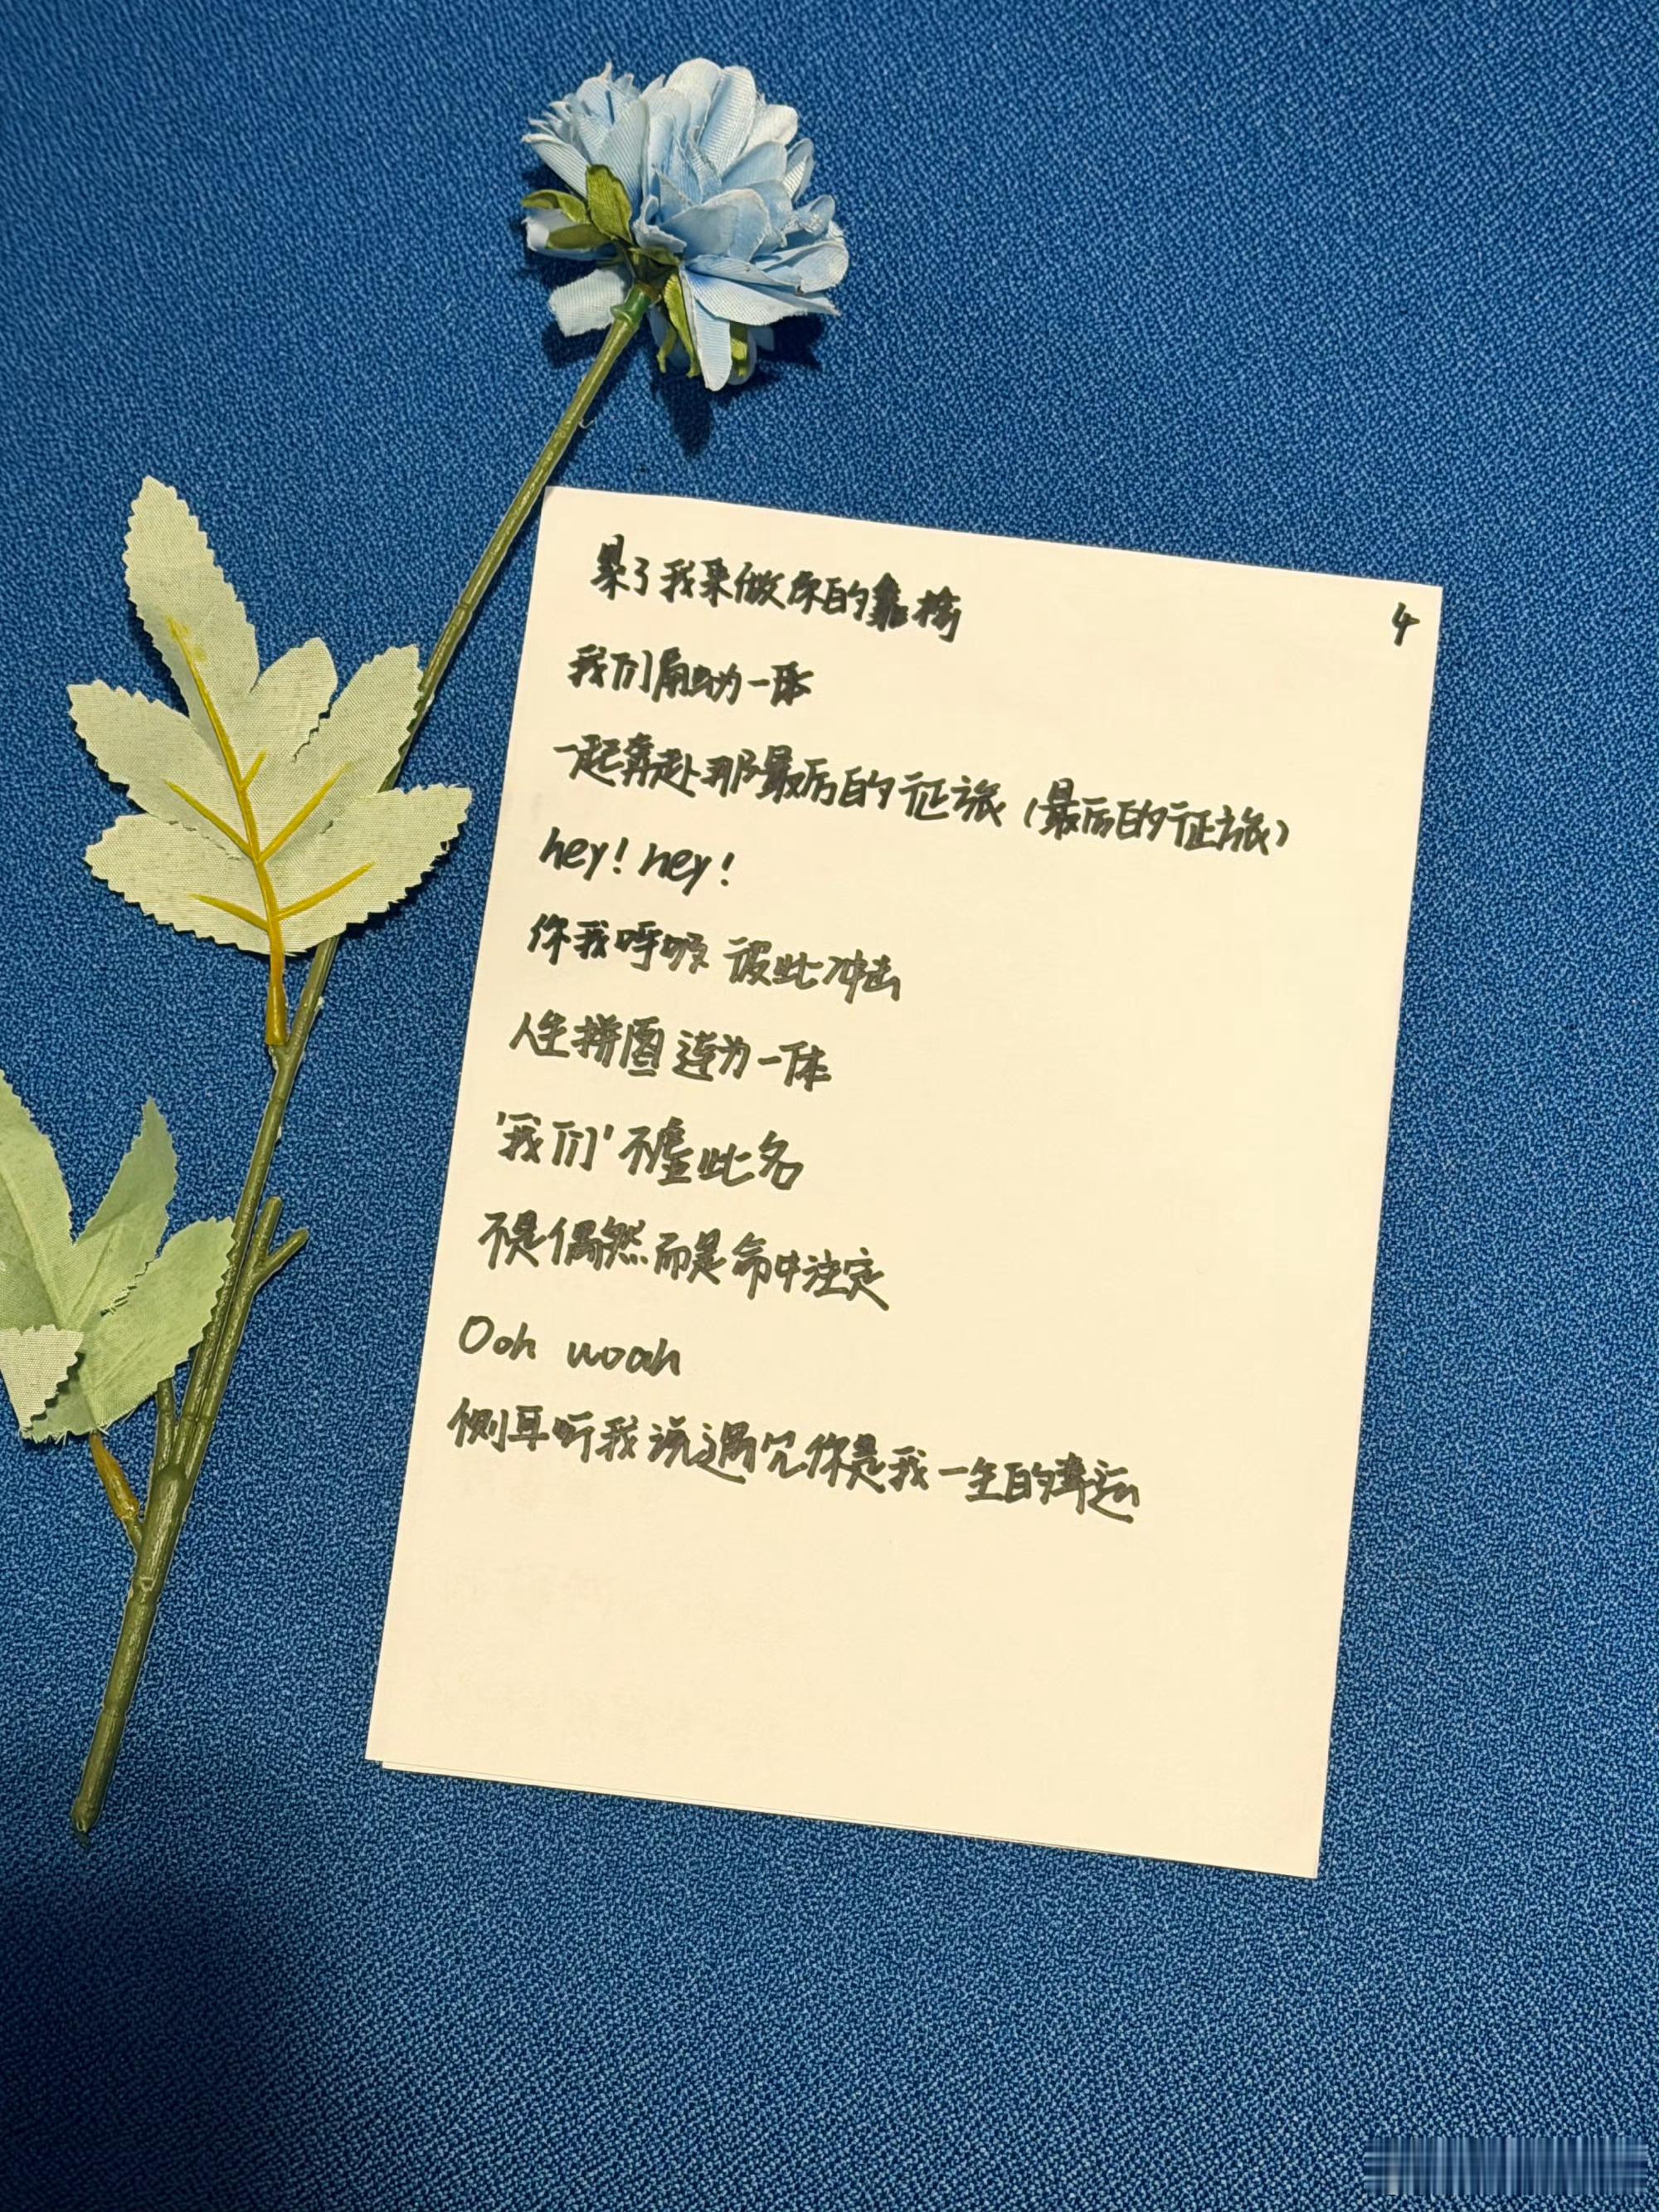 4
累了我来做你的靠椅
我们融为一体
一起奔赴那最后的征旅(最后的征旅)
hey! hey!
你我呼吸 彼此冲击
人生拼图 连为一体
'我们'不虚此名
不是偶然而是命中注定
Ooh woah
侧耳听我说遇见你是我一生的幸运